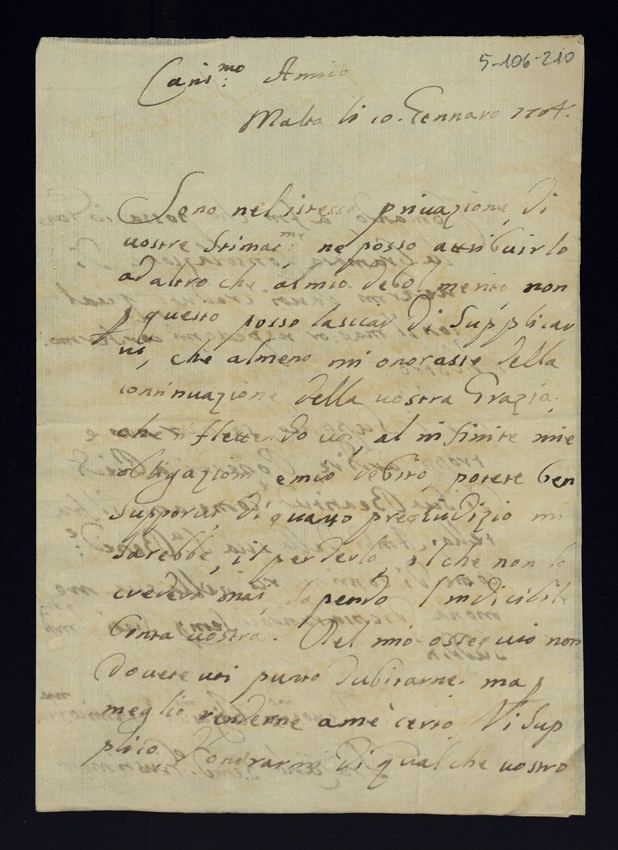 5-106-210
Caris.mo Amico
Malta li 10. Gennaro 1704.
Sono nel istessa privazione, di
vostre Stimat.me ne posso attribuirlo
ad altro che al mio debol merito, non
p questo posso lasciar di Supplicar
vi, che almeno mi onoraste della
continuazione della vostra Grazia,
che riflettendo voi, al infinite mie
obligazioni e mio debito, potete ben
Suppora, di quanto pregiudizio mi
sarebbe, il perderla, il che non lo
crederò mai, sapendo l'indicibile
bontà vostra. Del mio ossequio non
dovete voi punto dubitarne, ma p
meglio renderne a mè certo Vi Sup
plico d'onorarmi di qualche vostro